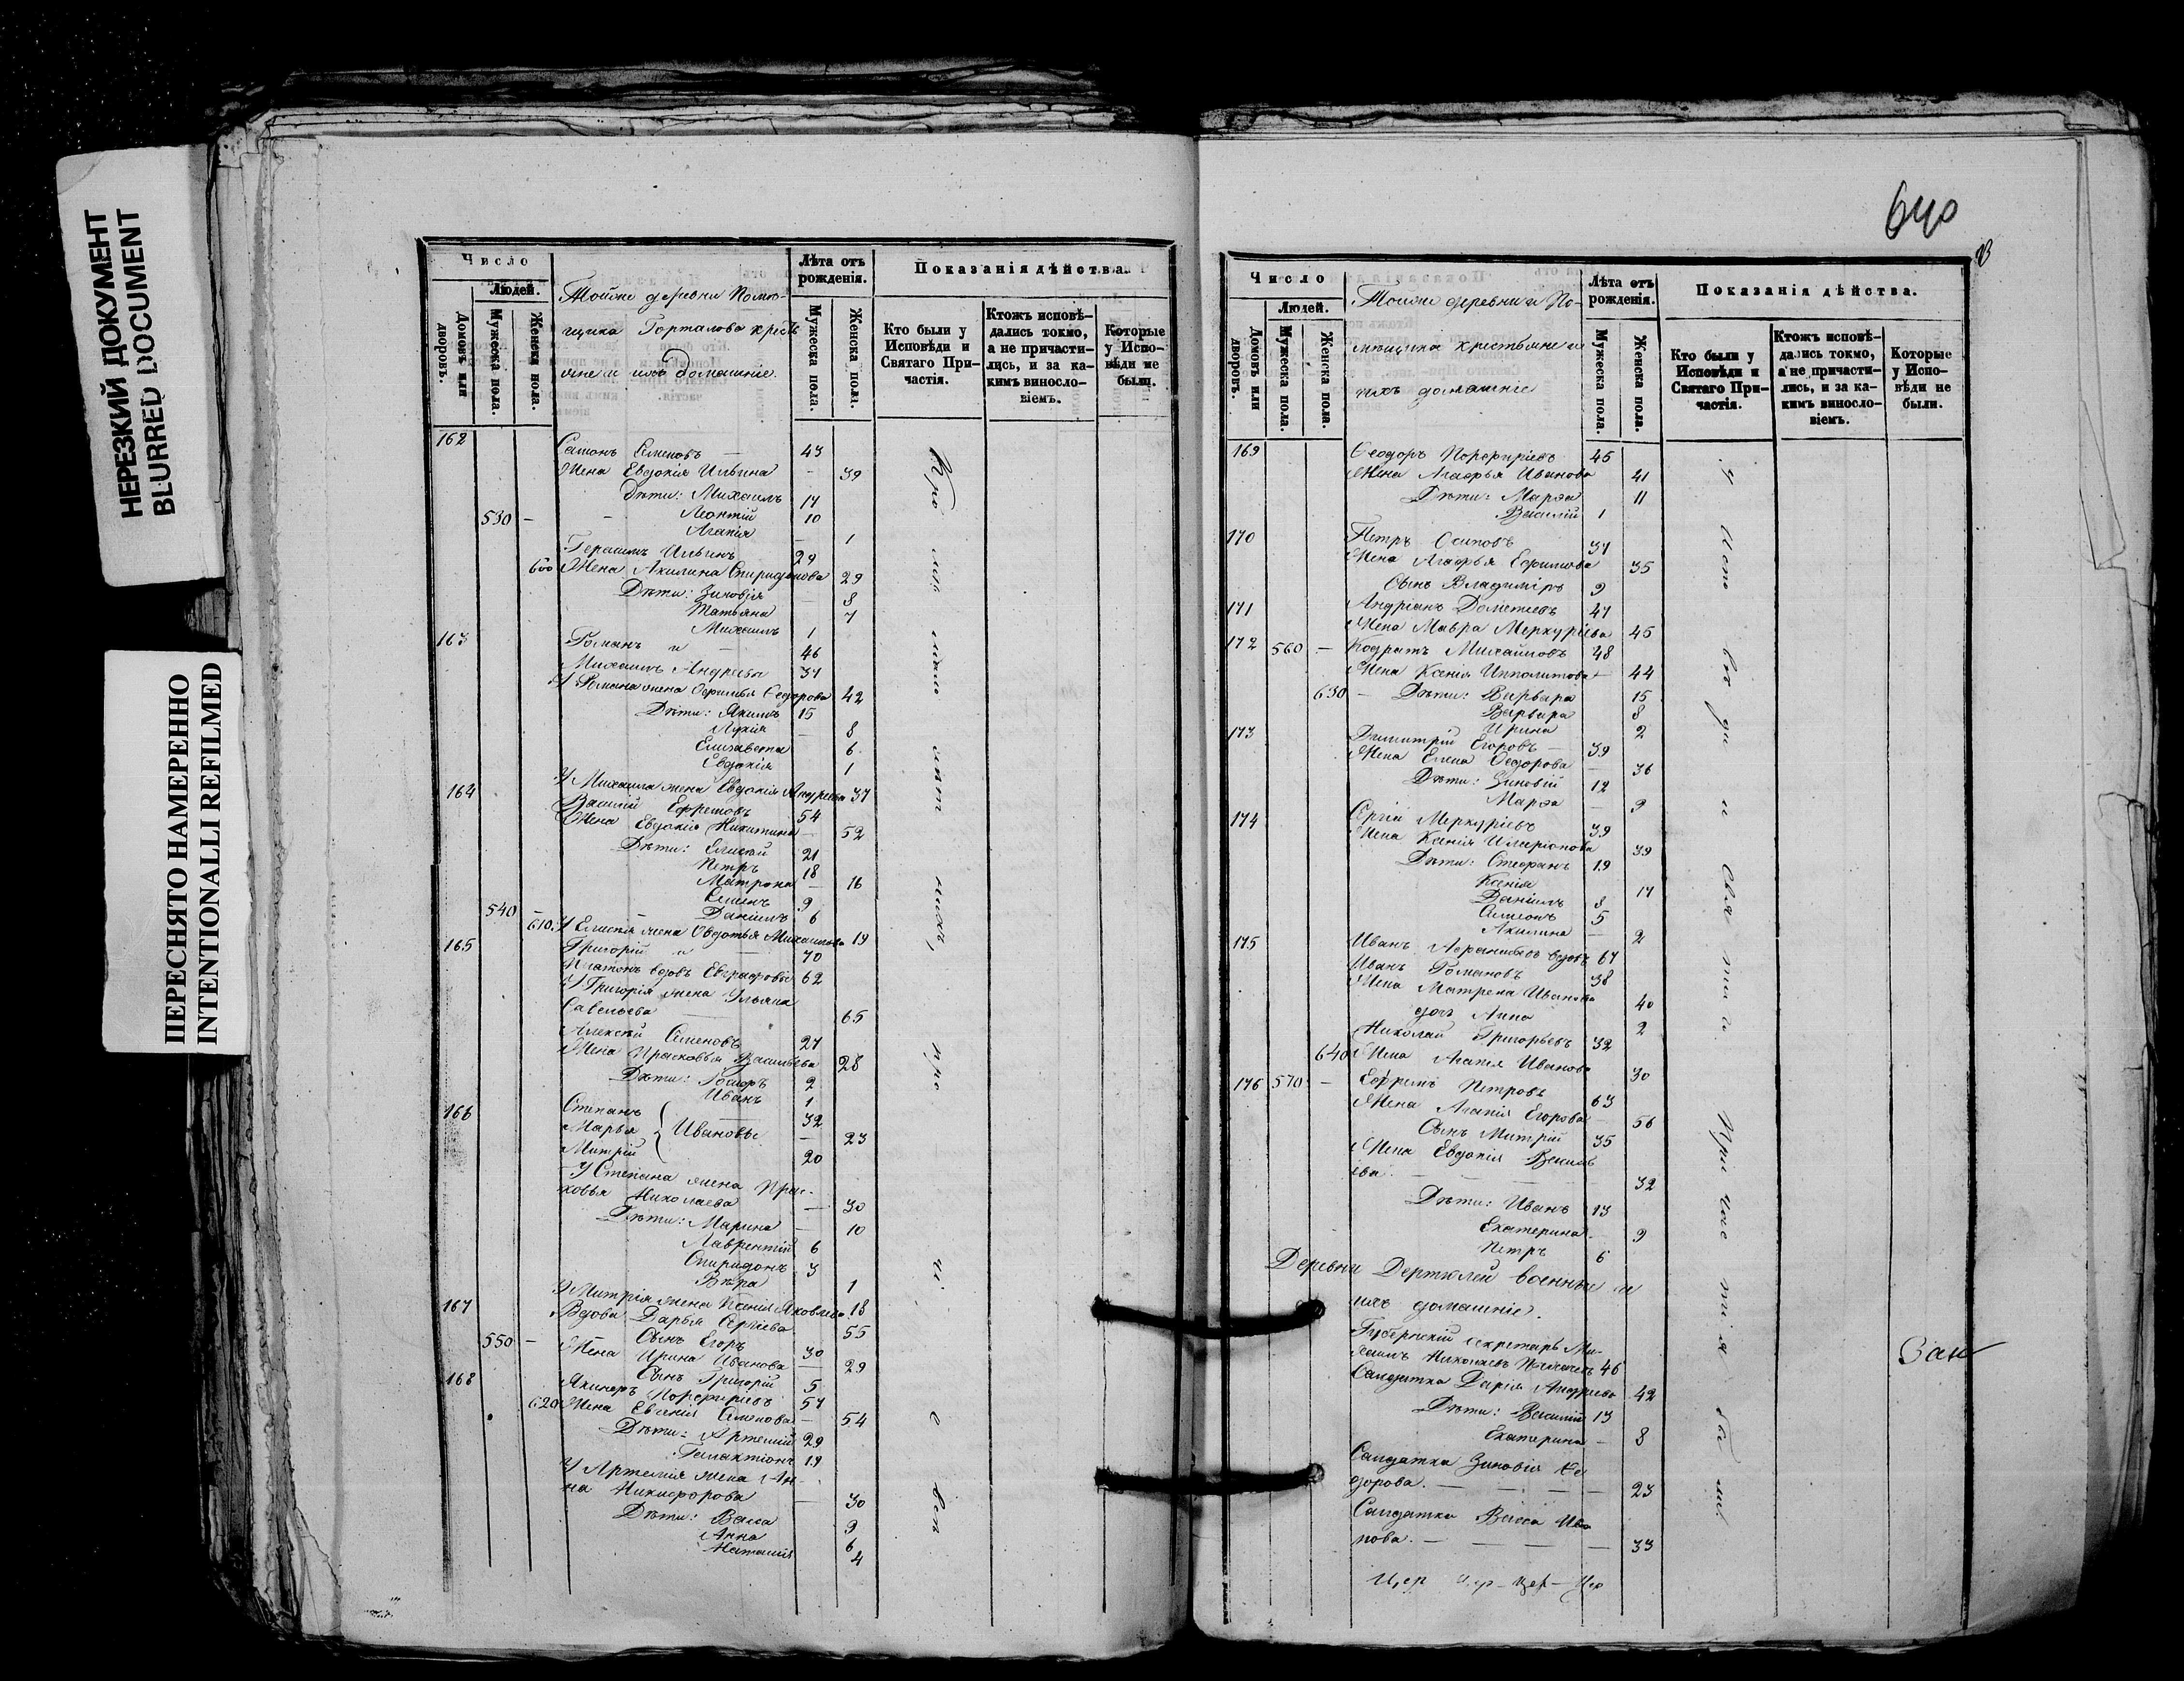 НЕРЕЗКИЙ ДОКУМЕНТ
BLURRED DOCUMENT
ПЕРЕСНЯТО НАМЕРЕННО
INTENTIONALLI REFILMED
Число
Людей.
Домовъ или дворовъ.
Мужеска пола.
Женска пола.
Тойже деревни Помѣ-
щика Горталова крестъ
яне и ихъ домашніе.
Лѣта отъ рожденія.
Мужеска пола.
Женска пола.
Показанія дѣйства.
Кто были у Исповѣди и Святаго При-частія.
Ктожъ исповѣ-дались токмо, а не причасти-лись, и за ка-кимъ винословіемъ.
Которые у Испо-вѣди не были.
162 Симонъ Семеновъ — 43
Жена Евдокія Ильина — 39
Дѣти: Михаилъ 14
530 — Леонтій 10
Агапія — 1
Герасимъ Ильинъ 29
600 Жена Акилина Спиридонова 29
Дѣти: Зиновія — 8
Татьяна 7
Михаилъ 1
163 Романъ и — 46
Михаилъ Андреевы 37
У Романа жена Ефимья Федорова 42
Дѣти: Якимъ 15
Лукія — 8
Елизавета 6
Евдокія 1
У Михаила жена Евдокія Андреева 37
164 Василій Ефремовъ 54
Жена Евдокія Никитина — 52
Дѣти: Елисѣй 21
Петръ 18
Матрона — 16
Семенъ 9
540 — Даніилъ 6
610 У Елисѣя жена Овдотья Михаилова 19
165 Григорій и — 70
Платонъ вдовъ Евграфовы 62
У Григорія жена Ульяна
Савельева — 65
Алексѣй Семеновъ 27
Жена Прасковья Васильева 28
Дѣти: 2
Иванъ 1
166 Степанъ 32
Марья Ивановы — 23
Митрій 20
У Степана жена Прас-
ковья Николаева — 30
Дѣти: Марина — 10
Лаврентій 6
Спиридонъ 3
Вѣра 1
У Митрія жена Ксенія Яковлева 18
167 Вдова Дарья Сергѣева 55
550 — Сынъ Егоръ 30
Жена Ирина Иванова — 29
Сынъ Григорій 5
168 Порфирьевъ 57
620 Жена Евгенія Семенова — 54
Дѣти: Артемій 29
Галактіонъ 19
У Артемія жена Ан-
на Никифорова — 30
Дѣти: Васса 9
Анна 6
Наталія 4
640
Число
Людей.
Домовъ или дворовъ.
Мужеска пола.
Женска пола.
Тойже деревни и По-
мѣщика крестьяне и
ихъ домашніе
Лѣта отъ рожденія.
Мужеска пола.
Женска пола.
Показанія дѣйства.
Кто были у Исповѣди и Святаго При-частія.
Ктожъ исповѣ-дались токмо, а не причасти-лись, и за ка-кимъ винословіемъ.
Которые у Испо-вѣди не были.
169 Ѳеодоръ Порфиріевъ 45
Жена Агафья Иванова 41
Дѣти: Марѳа 11
Василій 1
170 Петръ Осиповъ 37
Жена Агафья Ефимова 35
Сынъ Владиміръ 9
171 Андріанъ Дометіевъ 47
Жена Мавра Меркуріева 45
172 560 — Кодратъ Михайловъ 48
Жена Ксенія Ипполитова 44
630 — Дѣти: Варвара 15
Варвара 8
Ирина 2
173 Димитрій Егоровъ — 39
Жена Елена Ѳедорова — 36
Дѣти: Зиновій 12
Марѳа — 9
174 Сергій Меркуріевъ 39
Жена Ксенія Иларіонова 39
Дѣти: Стефанъ 19
Ксенія 17
Даніилъ 8
Симеонъ 5
Акилина — 2
175 Иванъ вдовъ 67
Иванъ Романовъ 38
Жена Матрена Иванова 40
дочь Анна 2
Николай Григорьевъ 32
640 Жена Агапія Иванова 30
176 570 — Ефремъ Петровъ 63
Жена Агапія Егорова 56
Сынъ Митрій 35
Жена Евдокія Василь
ева — 32
Дѣти: Иванъ 13
Екатерина 9
Петръ 6
Деревни военные и
ихъ домашніе.
Губернскій секретарь Ми-
хаилъ Николаевъ 46
Салдатка Дарія Андреева 42
Дѣти: Василій 13
Екатерина — 8
Салдатка Зиновія Ѳе
дорова. — 23
Салдатка Васса Ива
нова. — 33
у Исповѣди и Святаго Причастія были.
Зан